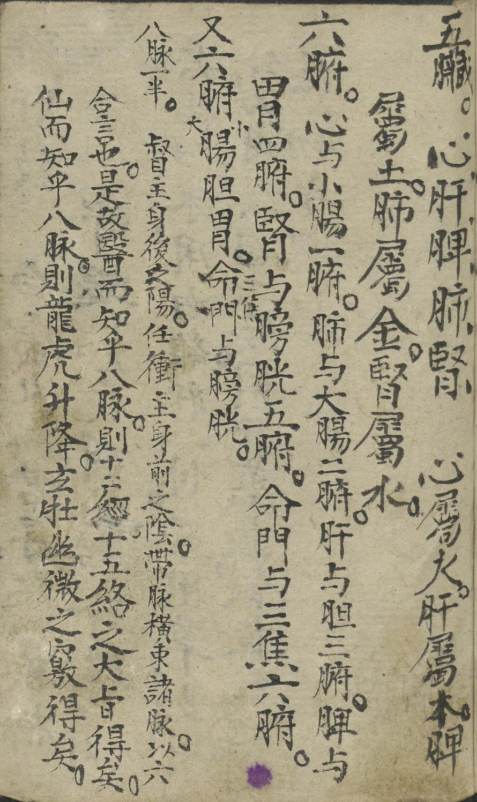 五臟。心肝脾肺腎 心屬火。肝屬木。脾
屬土。肺屬金。腎屬水。
六腑。心与小腸一腑。肺与大腸二腑。肝与胆三腑。脾与
胃四腑。腎与膀胱五腑。命門与三焦六腑。
又六腑小大腸胆胃。三焦命門与膀胱。
八脉一半。 督主身後之陽。任衝主身前之陰。帶脉橫束諸脉。以六
合言也。是故醫而知乎八脉。則十二經十五絡之大旨得矣。
仙而知乎八脉。則龍虎升降。玄牡幽微之竅得矣。